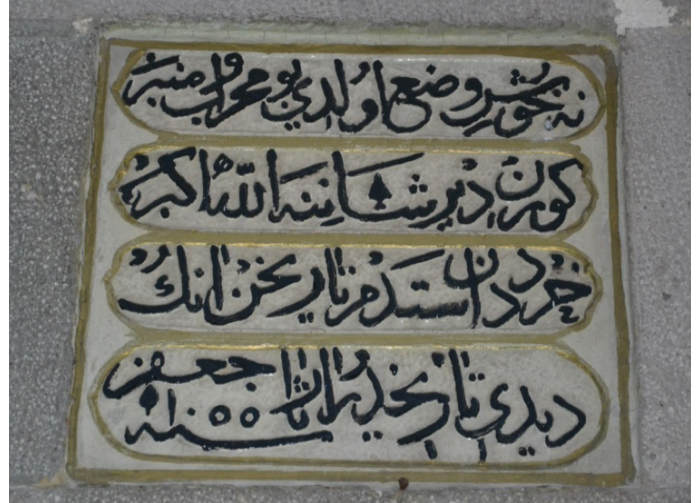 نه خوش وضع اولدي بو محراب و منبر
كورن دير شاننه الله اكبر
خرددن استدم تاريخن انك
ديدي تاريخيدر اثار جعفر
سنه ١٠٥٥